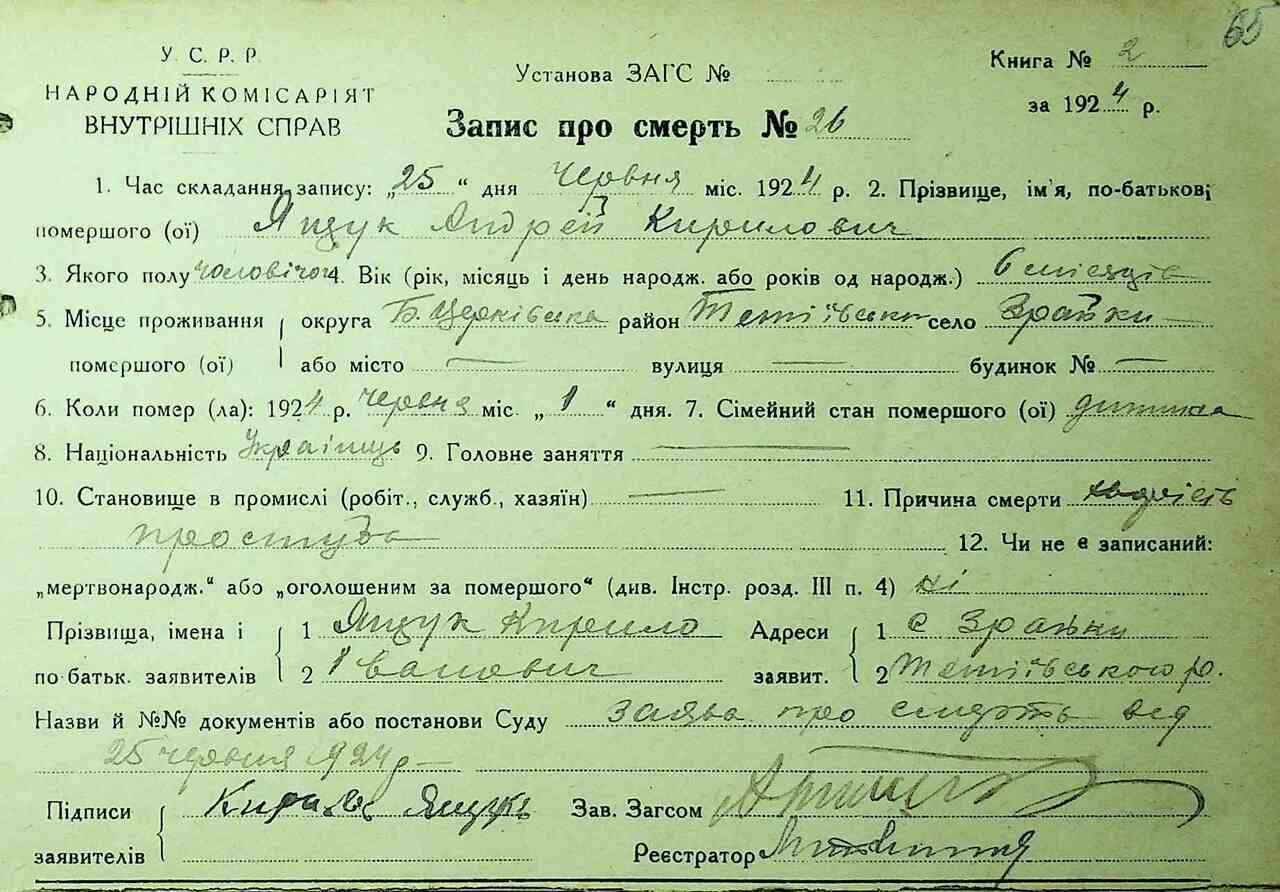 65
У. С. Р. Р.
НАРОДНІЙ КОМІСАРІЯТ
ВНУТРІШНІХ СПРАВ
Установа ЗАГС №
Книга № 2
за 1924 р.
Запис про смерть № 26
1. Час складання запису: „25“ дня Червня міс. 1924 р. 2. Прізвище, ім'я, по-батькові
помершого (ої) Ящук Андрей Кирилович
3. Якого полу чоловічог 4. Вік (рік, місяць і день народж. або років од народж.) 6 місяців
5. Місце проживання округа Б. Церківська район Тетіївськ село Зрайки
помершого (ої) або місто — вулиця — будинок № —
6. Коли помер (ла): 1924 р. червня міс „1“ дня. 7. Сімейний стан помершого (ої) дитина
8. Національність Українць 9. Головне заняття —
10. Становище в промислі (робіт., служб., хазяїн) — 11. Причина смерти
простуда 12. Чи не є записаний:
„мертвонародж.“ або „оголошеним за помершого“ (див. Інстр. розд. III п. 4) ні
Прізвища, імена і 1 Ящук Кирило Адреси 1 с Зрайки
по батьк. заявителів 2 Іванович заявит. 2 Тетіївського р.
Назви й №№ документів або постанови Суду заява про смерть від
25 червня 1924 р —
Підписи Ящукъ Зав. Загсом
заявителів Реєстратор